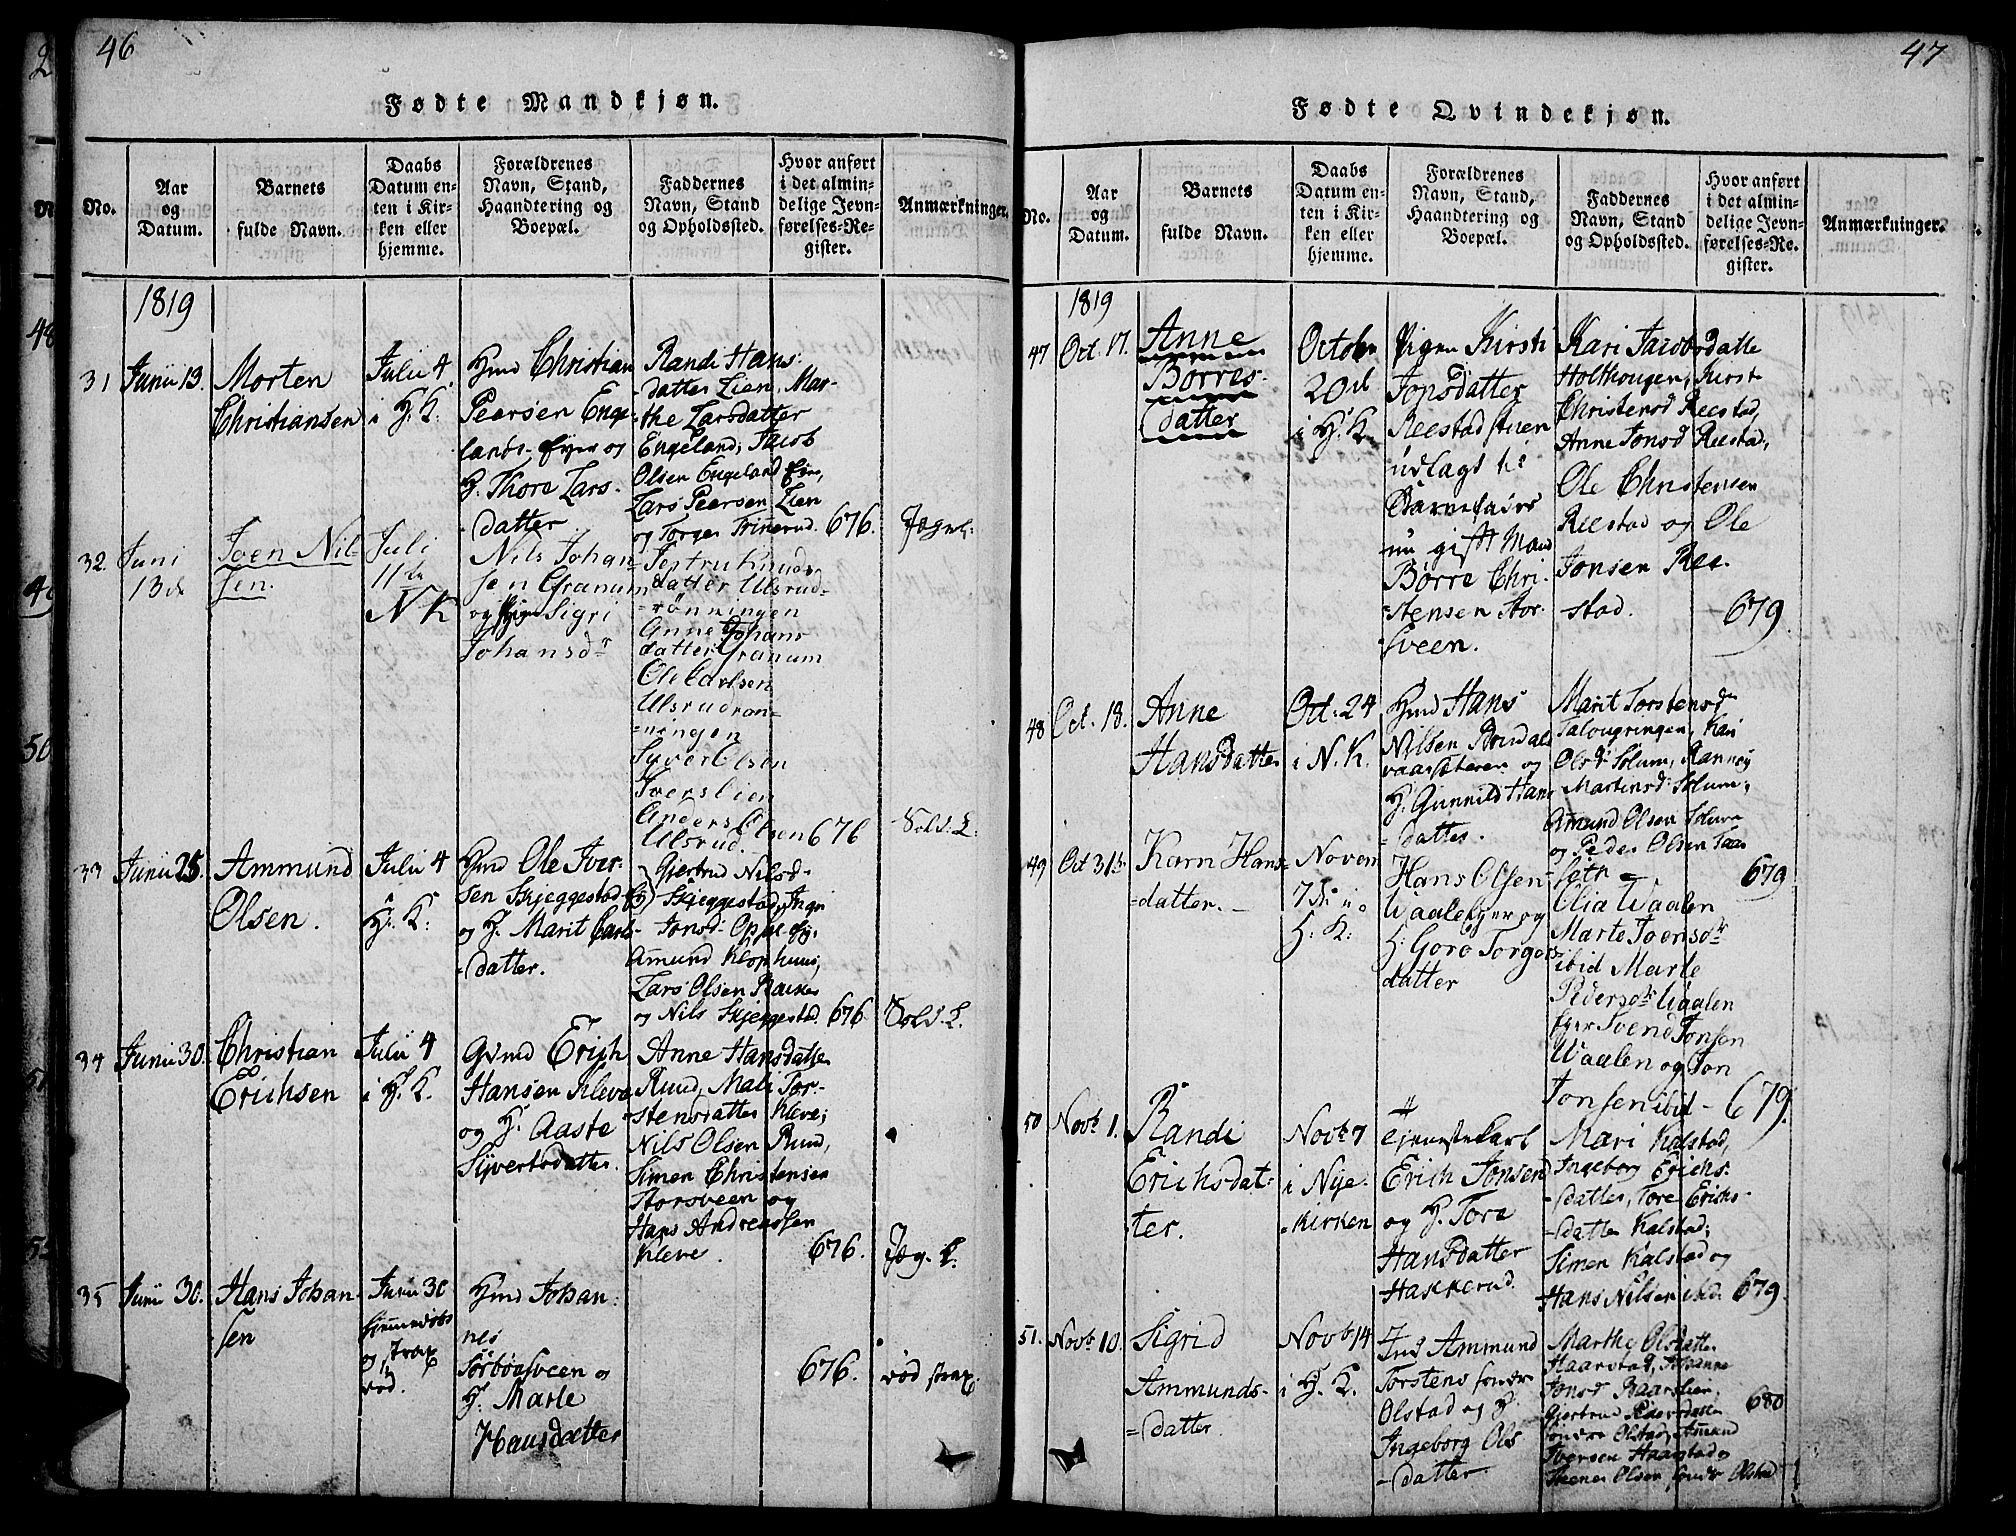 46
Fødte Mandkjøn.
No.
Aar
og
Datum.
Barnets
fulde Navn.
Daabs
Datum en-
ten i Kir-
ken eller
hjemme.
Forældrenes
Navn, Stand,
Haandtering og
Boepæl.
Faddernes
Navn, Stand
og Opholdssted.
Hvor anført
i det almin-
delige Jevn-
førelses-Re-
gister.
Anmærkninger.
1819
31
Junii 13.
Morten
Christiansen
Julii 4
i H. K.
Hmd Christian
Peersen Enge-
lands-Eyer og
H. Thore Lars-
datter
Randi Hans-
datter Lien, Mar-
the Larsdatter
Engeland, Jacob
Olsen Engeland
Lars Peersen Lien
og Torger Trinerud.
676.
32
Juni
13de
Joen Nil-
sen.
Juli
11te
N K
Nils Johan
sen Granum
og Sigri
Johansdr
Jertru Knuds
datter Ulsrud-
rønningen
Anne Johans
datter Granum
Ole Carlsen
Ulsrudrøn-
ningen
Syver Olsen
Iverslien
Anders Olsen
Ulsrud.
676
Sold: L:
33
Junii 25.
Ammund
Olsen.
Julii 4
H. K:
Hmd Ole Iver-
sen Skjeggestad
og H. Marit Carls-
datter.
Gjertrud Nilsd-
Skjeggestad, Ingri
Jonsd-
Amund Klophuus,
Lars Olsen
og Nils Skjeggestad.
676
Sold. L.
34
Junii 30.
Christian
Erichsen
Julii 4
i H. K.
Gvmd Erich
Hansen Kleve
og H. Aaste
Sijvertsdatter.
Anne Hansdatter
Ruud, Mali Tor-
stensdatter Kleve;
Nils Olsen Ruud,
Simen Christensen
Storsveen og
Hans Andreassen
Kleve.
676.
Jæg. L.
35
Junii 30.
Hans Johan-
sen
Junii 30
hjemmedøbt
og strax
død.
Hmd Johan-
nes
Sørbøesveen og
H. Marte
Hansdatter
676.
død strax.
47
Fødte Qvindekjøn.
No.
Aar
og
Datum.
Barnets
fulde Navn.
Daabs
Datum en-
ten i Kir-
ken eller
hjemme.
Forældrenes
Navn, Stand,
Haandtering og
Boepæl.
Faddernes
Navn, Stand
og Opholdssted.
Hvor anført
i det almin-
delige Jevn-
førelses-Re-
gister.
Anmærkninger.
1819
47
Oct. 17.
Anne
Børres-
datter
Octobr
20de
i H. K.
Pigen Kirsti
Jonsdatter
Reestadstuen
udlagt til
Barnefader
nu gift Mand
Børre Chri-
stensen Stor-
sveen.
Kari Jacobsdatter
Holthougen,
Christensd Reestad,
Anne Jonsd Reestad,
Ole Christensen
Reestad og Ole
Jonsen Ree-
stad.
679.
48
Oct. 18.
Anne
Hansdatter
Oct. 24
i N. K.
Hmd Hans
Nilsen
og
H. Gunnild Hans-
datter.
Marit Torstensdr
Kari
Olsd: Solum,
Martinsd: Solum;
Amund Olsen Solum
og Peder Olsen Taa-
seth -
679.
49
Oct 31te
Karn Hans-
datter. -
Novem
7de i
H. K:
Hans Olsen
Waalen Eyer og
H: Goro Torgers
datter
Olia Waalen
Marte Joensdr
ibid Marte
Pedersdr Waalen
Eyer Svend Jonsen
Waalen og Jon
Jonsen ibid -
679.
50
Novb. 1.
Randi
Erichsdat-
ter.
Novb 7
i Nye-
kirken
Tjenestekarl
Erich Jonsen
og H. Tore
Hansdatter
Hakkerud.
Mari Kalstad,
Ingeborg Erichs-
datter, Tore Erichs-
datter Kalstad;
Simen Kalstad og
Hans Nilsen ibid.
679.
51.
Novb 10.
Sigrid
Ammunds-
datter.
Novb 14
i H. K.
Ammund
Torstens søndre
Olstad og H.
Ingeborg Ols
datter.
Marthe Olsdatter
Haarstad, Johanne
Jonsd
Gjertrud Pedersdatter
søndre Olstad, Ammund
Iversen Haarstad og
Olsen søndr Olstad
680